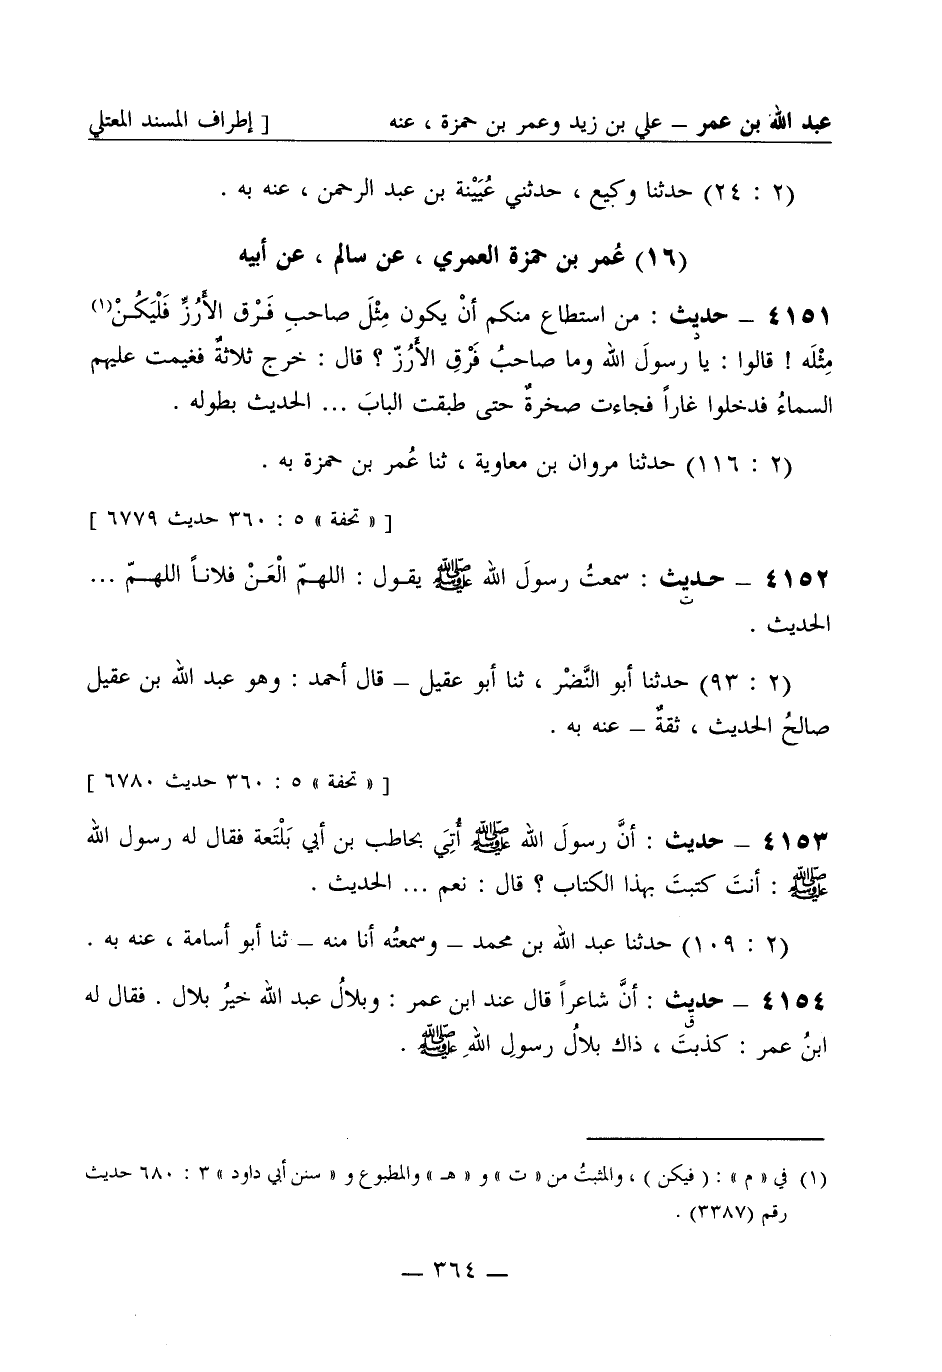 عبد الله بن عمر – علي بن زيد وعمر بن حمزة ، عنه [ إطراف المسند المعتلي
(٢ : ٢٤) حدثنا وكيع ، حدثني عُيَيْنة بن عبد الرحمن ، عنه به .
(١٦) عُمر بن حمزة العمري ، عن سالم ، عن أبيه
٤١٥١ – حديث : من استطاع منكم أنْ يكون مِثْلَ صاحبِ فَرْق الأَرُزِّ فَلْيَكُنْ(١)
د
مِثْلَه ! قالوا : يا رسولَ الله وما صاحبُ فَرْقِ الأَرُزّ ؟ قال : خرج ثلاثةٌ فغيمت عليهم
السماءُ فدخلوا غاراً فجاءت صخرةٌ حتى طبقت البابَ ... الحديث بطوله .
(٢ : ١١٦) حدثنا مروان بن معاوية ، ثنا عُمر بن حمزة به .
[ « تحفة » ٥ : ٣٦٠ حديث ٦٧٧٩ ]
٤١٥٢ – حديث : سمعتُ رسولَ الله ﷺ يقول : اللهمّ الْعَنْ فلاناً اللهمّ ...
ت
الحديث .
(٢ : ٩٣) حدثنا أبو النَّضْر ، ثنا أبو عقيل – قال أحمد : وهو عبد الله بن عقيل
صالحُ الحديث ، ثقةٌ – عنه به .
[ « تحفة » ٥ : ٣٦٠ حديث ٦٧٨٠ ]
٤١٥٣ – حديث : أنَّ رسولَ الله ﷺ أُتِيَ بحاطب بن أبي بَلْتَعة فقال له رسول الله
ﷺ : أنتَ كتبتَ بهذا الكتاب ؟ قال : نعم ... الحديث .
(٢ : ١٠٩) حدثنا عبد الله بن محمد – وسمعتُه أنا منه – ثنا أبو أسامة ، عنه به .
٤١٥٤ – حديث : أنَّ شاعراً قال عند ابن عمر : وبلالُ عبد الله خيرُ بلال . فقال له
ق
ابنُ عمر : كذبتَ ، ذاك بلالُ رسولِ اللهِ ﷺ .
(١) في « م » : ( فيكن ) ، والمثبتُ من « ت » و « هـ » والمطبوع و « سنن أبي داود » ٣ : ٦٨٠ حديث
رقم (٣٣٨٧) .
– ٣٦٤ –